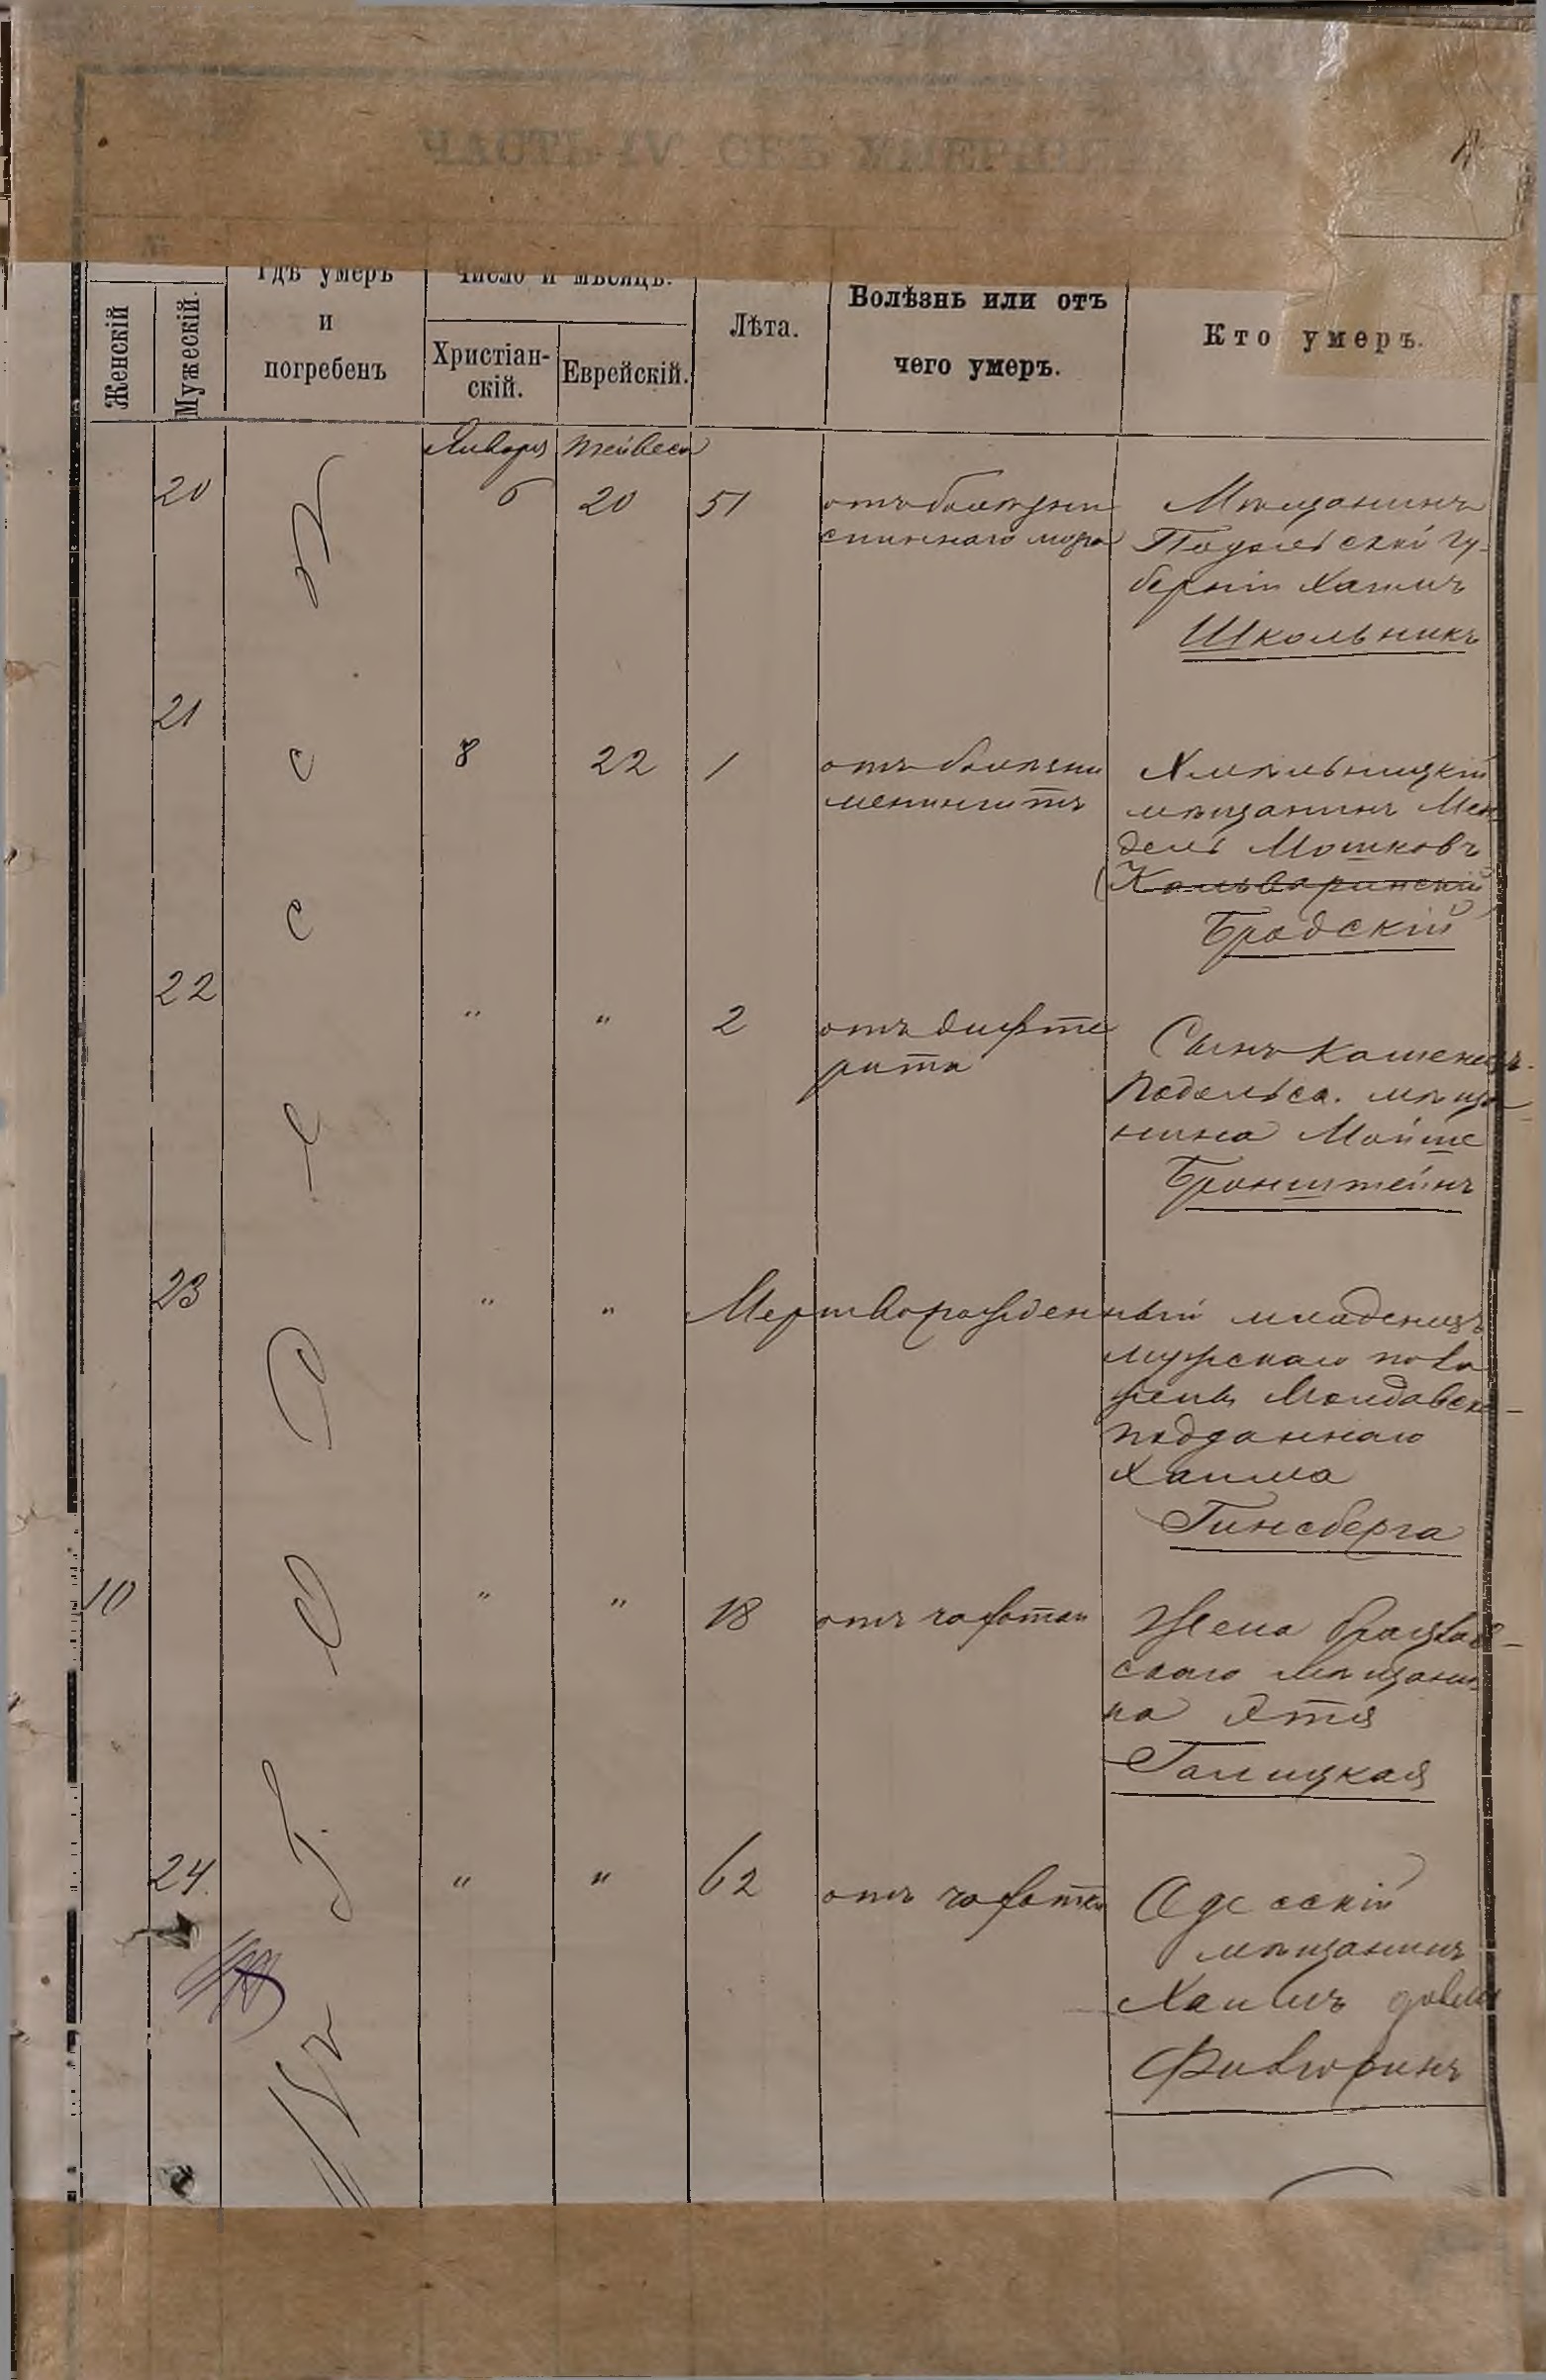 ЧАСТЬ IV. ОБЪ УМЕРШИХЪ
Женскій
Мужескій.
Гдѣ умеръ
и
погребенъ
Число и мѣсяцъ.
Христіан-
скій.
Еврейскій.
Лѣта.
Болѣзнь или отъ
чего умеръ.
Кто умеръ.
Января Тейвеса
20 6 20 51 отъ болѣзни Мѣщанинъ
спиннаго мозга Подольской гу-
берніи Хаимъ
Школьникъ
21
8 22 1 отъ болѣзни Хмѣльницкій
менингитъ мѣщанинъ Мен
дель Мошковъ
(Кальваринскій)
Бродскій
22
" " 2 отъ дифте Сынъ Каменец.
рита Подольск. мѣща
нина Мойше
Бронштейнъ
23 " " Мертворожденный младенецъ
мужскаго пола
жены Молдавск
подданнаго
Хаима
Гинсберга
10 " " 18 отъ чахотки Жена Брацлав
скаго мѣщани
на Этя
Галицкая
24. " " 62 отъ чахотки Одесскій
мѣщанинъ
Хаимъ
О д е с с